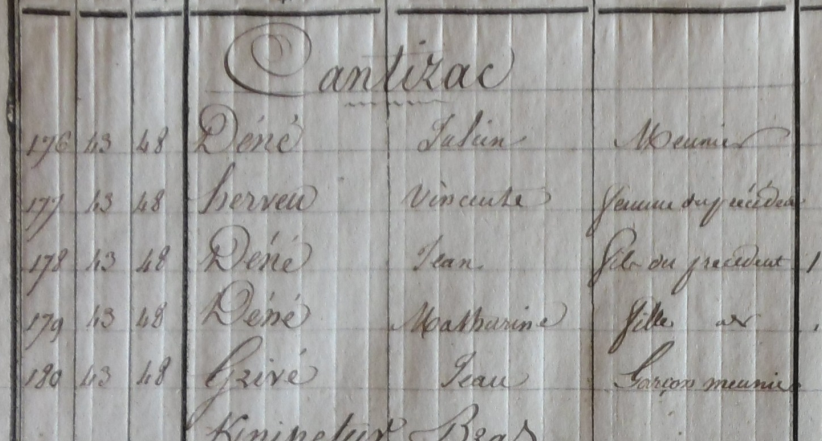 Cantizac
176 43 48 Déné Julien Meunier
177 43 48 herveu Vincente femme du précédent
178 43 48 Déné Jean fils du precedent 1
179 43 48 Déné Mathurine fille
180 43 48 Grivé Jean Garçon meunier
Bras